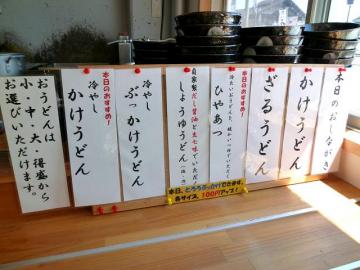 本日のおしながき
かけうどん
ざるうどん
本日のおすすめ！
冷たいおうどんを、暖かいつゆでいただく
ひやあつ
自家製だし醤油と生七味でいただく
しょうゆうどん
本日のおすすめ！
冷やし
ぶっかけうどん
冷やし
かけうどん
おうどんは
小・中・大・得盛から
お選びいただけます。
本日、とろろぶっかけできます。
各サイズ、100円アップ！